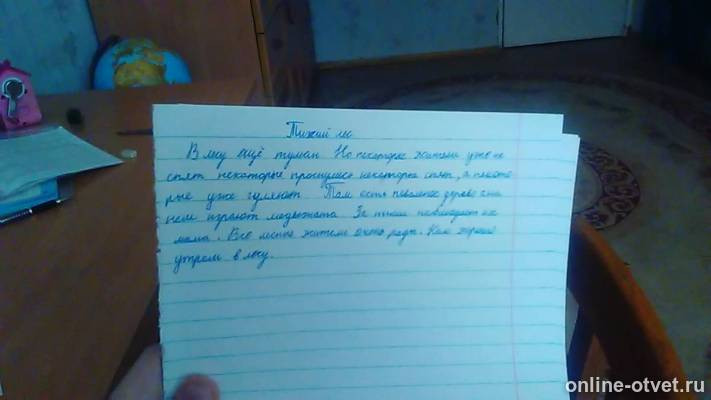 Тихий лес
В лесу ещё туман Но некоторые жители уже не
спят некоторые проснулися некоторые спят, а некото
рые уже гуляют Там есть поваленое дерево а на
нем играют медвежата За ними наблюдает их
мама. Все лесные жители очень рады. Как хорошо
утром в лесу.
online-otvet.ru